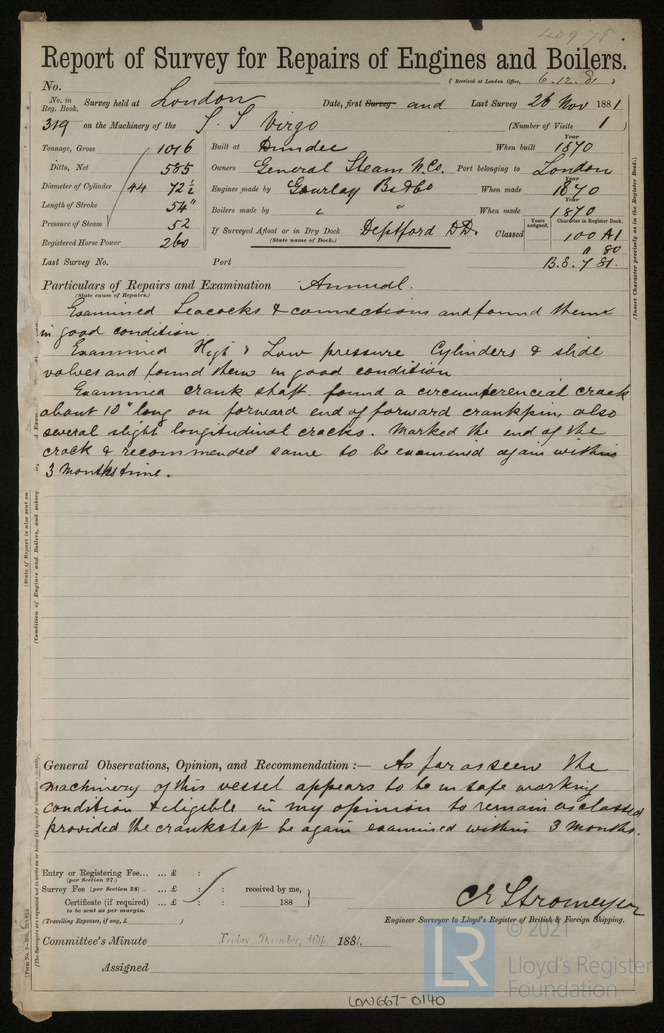 40978
Report of Survey for Repairs of Engines and Boilers.
(Received at London Office, 6.12.81)
No.
No. in Reg. Book. Survey held at London Date, first Survey and Last Survey 26 Nov 1881
319 on the Machinery of the S.S Virgo (Number of Visits 1)
Tonnage, Gross 1016 Built at Dundee When built Year 1870
Ditto, Net 585 Owners General Steam N. Co. Port belonging to London
Diameter of Cylinder 44 72½ Engines made by Gourlay Bs & Co When made Year 1870
Length of Stroke 54" Boilers made by " " When made Year 1870
Pressure of Steam 52 If Surveyed Afloat or in Dry Dock Deptford DD. Classed Years assigned. Character in Register Book. 100 A1
(State name of Dock.)
Registered Horse Power 260 " 80
Last Survey No. Port B.S. 7 81.
Particulars of Repairs and Examination Annual.
(State cause of Repairs.)
Examined Seacocks & connections and found them
in good condition.
Examined High & Low pressure Cylinders & slide
valves and found them in good condition
Examined crank shaft. found a circumferencial crack
about 10" long on forward end of forward crankpin, also
several slight longitudinal cracks. Marked the end of the
crack & recommended same to be examined again within
3 months time.
(Insert Character precisely as in the Register Book.)
(State if Report is also sent on
(Condition of Engines and Boilers,
General Observations, Opinion, and Recommendation:— As far as seen the
machinery of this vessel appears to be in safe working
condition & eligible in my opinion to remain as classed
provided the crankshaft be again examined within 3 months.
Entry or Registering Fee... ... £ : :
(per Section 27.)
Survey Fee (per Section 28) ... ... £ : : received by me,
Certificate (if required) ... £ : : 188
to be sent as per margin.
(Travelling Expenses, if any, £ )
C E Stromeyer
Engineer Surveyor to Lloyd's Register of British & Foreign Shipping.
Committee's Minute Friday, December, 1881.
Assigned
© 2021
LR Lloyd's Register
Foundation
LON667-0140